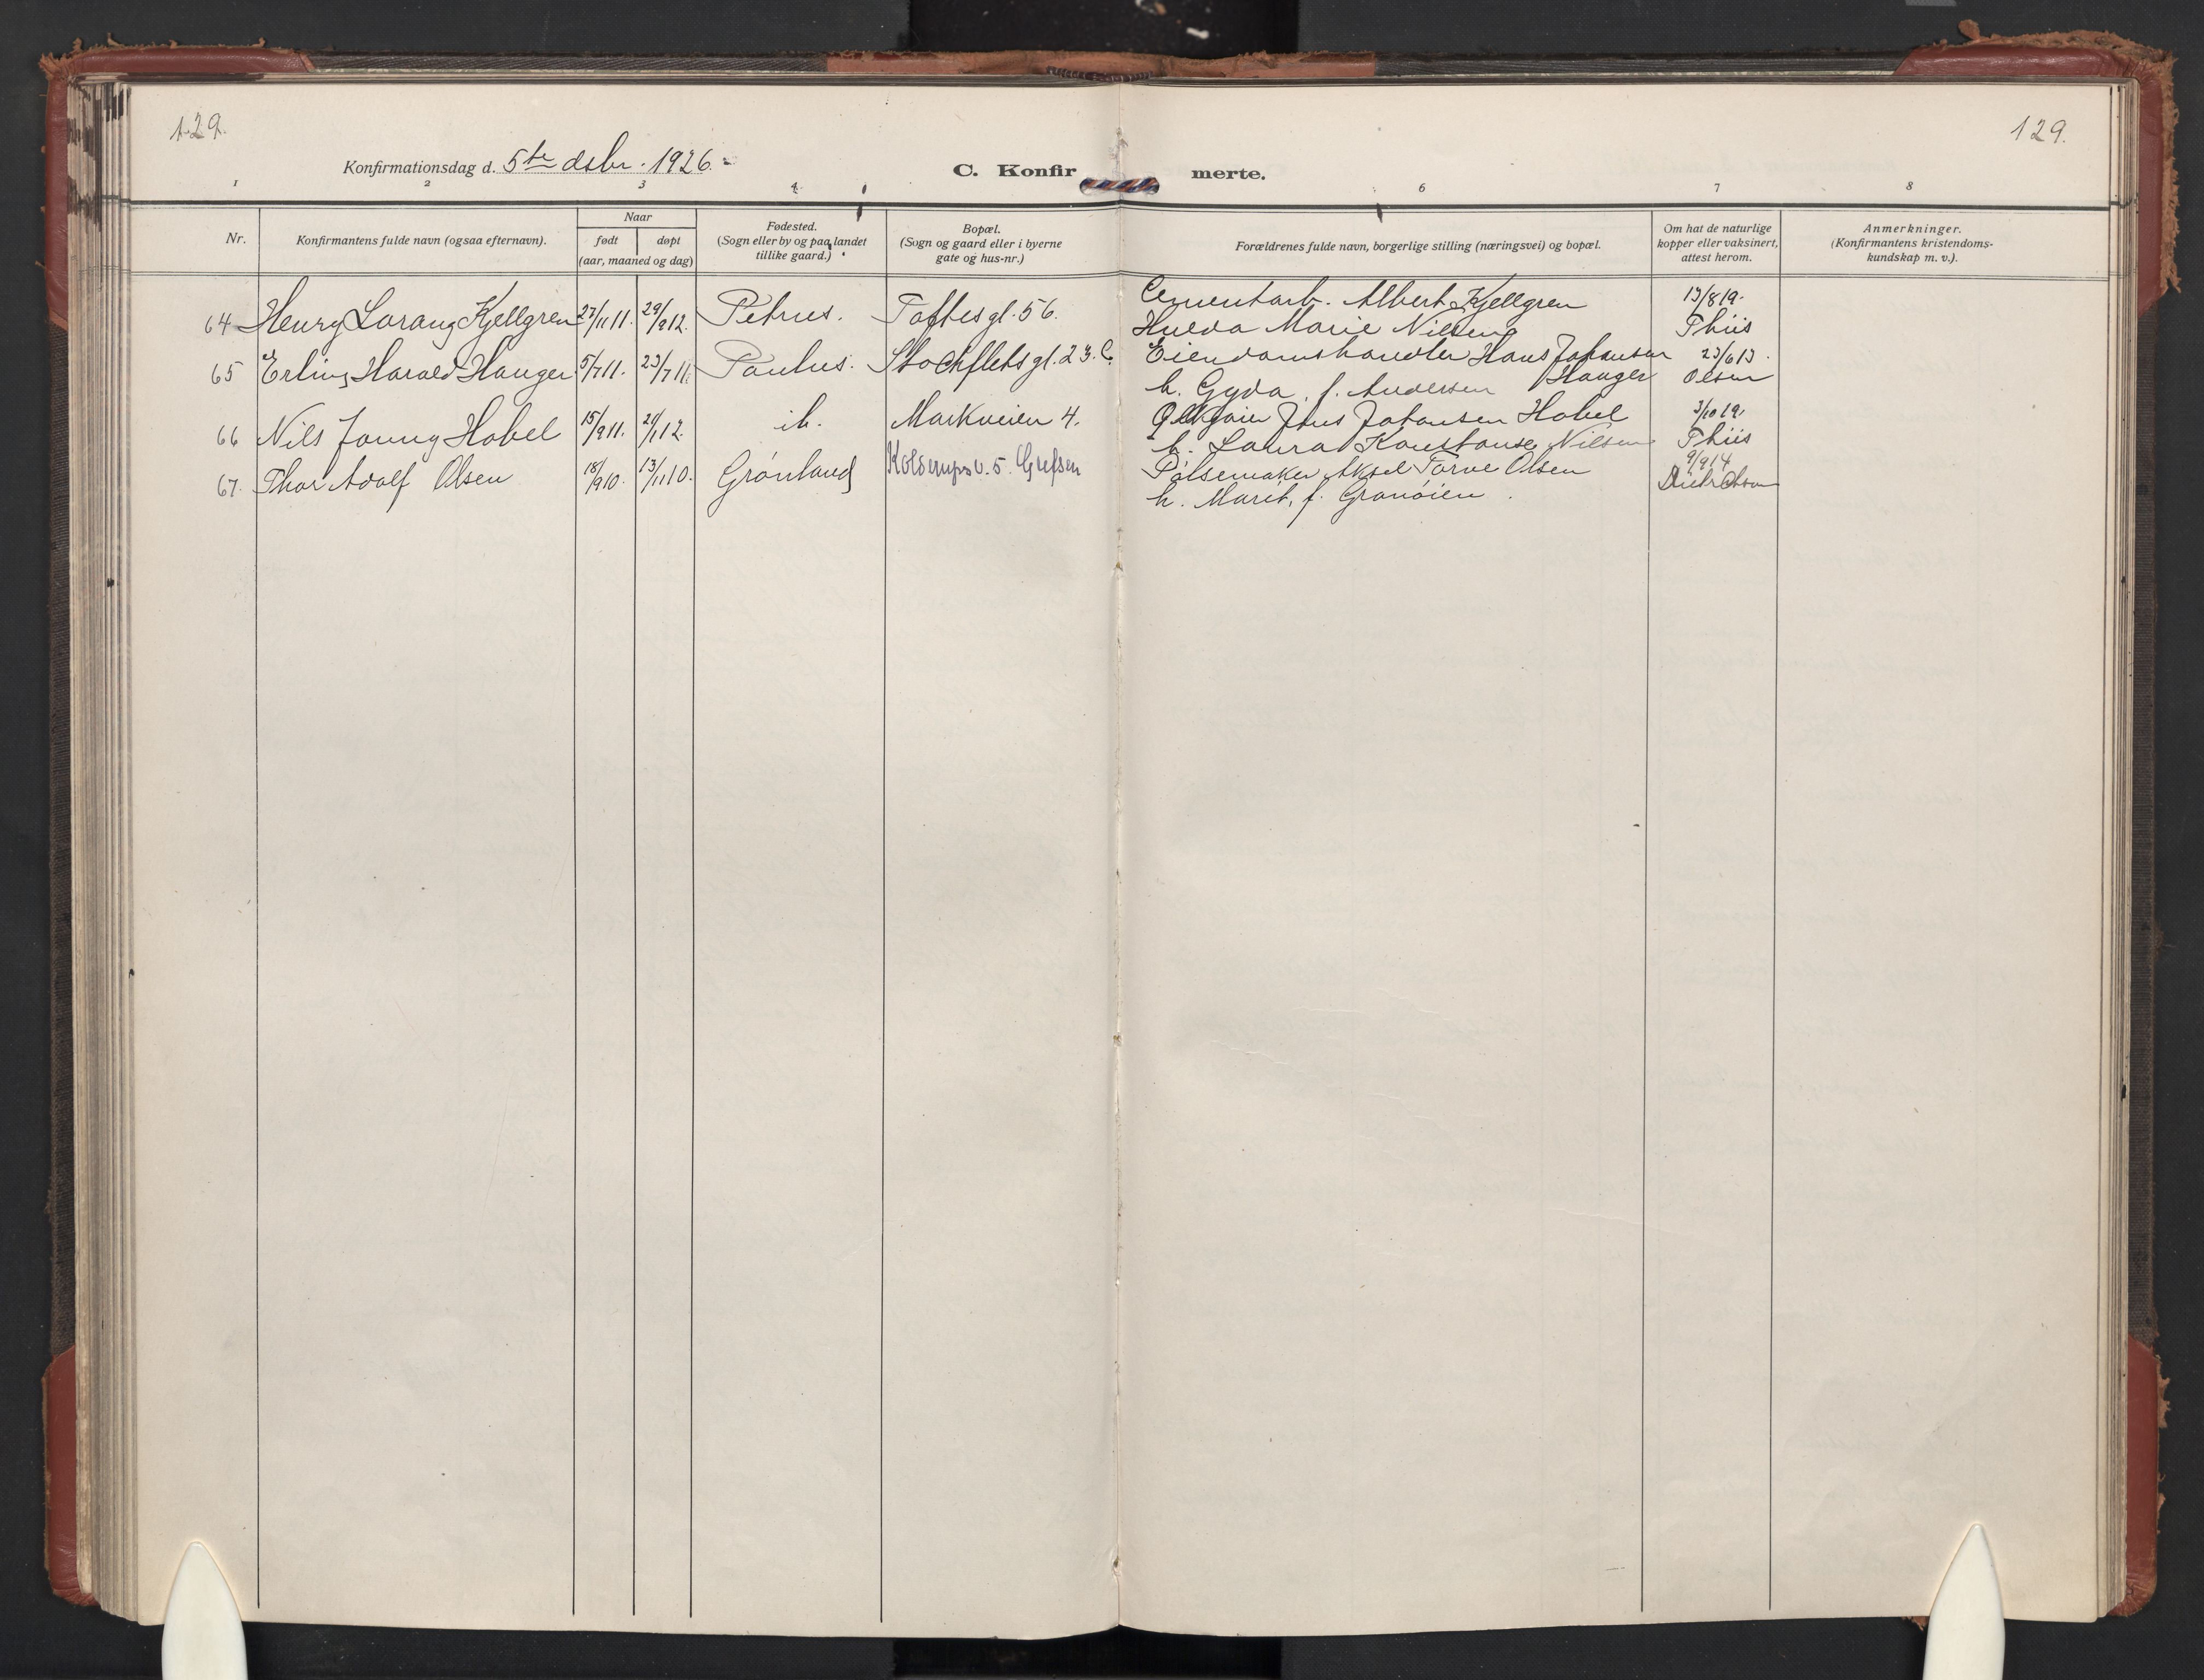 129.
129.
Konfirmationsdag d. 5te dsbr. 1926.
C. Konfirmerte.
1 2 3 4 6 7 8
Nr.
Konfirmantens fulde navn (ogsaa efternavn).
Naar
født
døpt
(aar, maaned og dag)
Fødested.
(Sogn eller by og paa landet
tillike gaard.)
Bopæl.
(Sogn og gaard eller i byerne
gate og hus-nr.)
Forældrenes fulde navn, borgerlige stilling (næringsvei) og bopæl.
Om hat de naturlige
kopper eller vaksinert,
attest herom.
Anmerkninger.
(Konfirmantens kristendoms-
kundskap m. v.).
64 Henry Lorang Kjellgren 27/11 11. 29/9 12. Petrus. Toftesgt. 56. Cementarb. Albert Kjellgren 13/8 19.
Hulda Marie Nilsen Thiis
65 Erling Harald Hauger 5/7 11. 23/7 11. Paulus. Stockfletsgt. 23. C. Eiendomshandler Hans Johansen 23/6 13.
h. Gyda, f. Andersen Hauger Olsen
66 Nils Jonny Hobel 15/9 11. 21/1 12. ib. Markveien 4. Jens Johansen Hobel 3/10 19.
h. Laura Konstanse Nilsen Thiis
67. Thor Adolf Olsen 18/9 10. 13/11 10. Grønland Kolderups v. 5. Grefsen Pølsemaker Aksel Torve Olsen 9/9 14
h. Marit, f. Granøien.